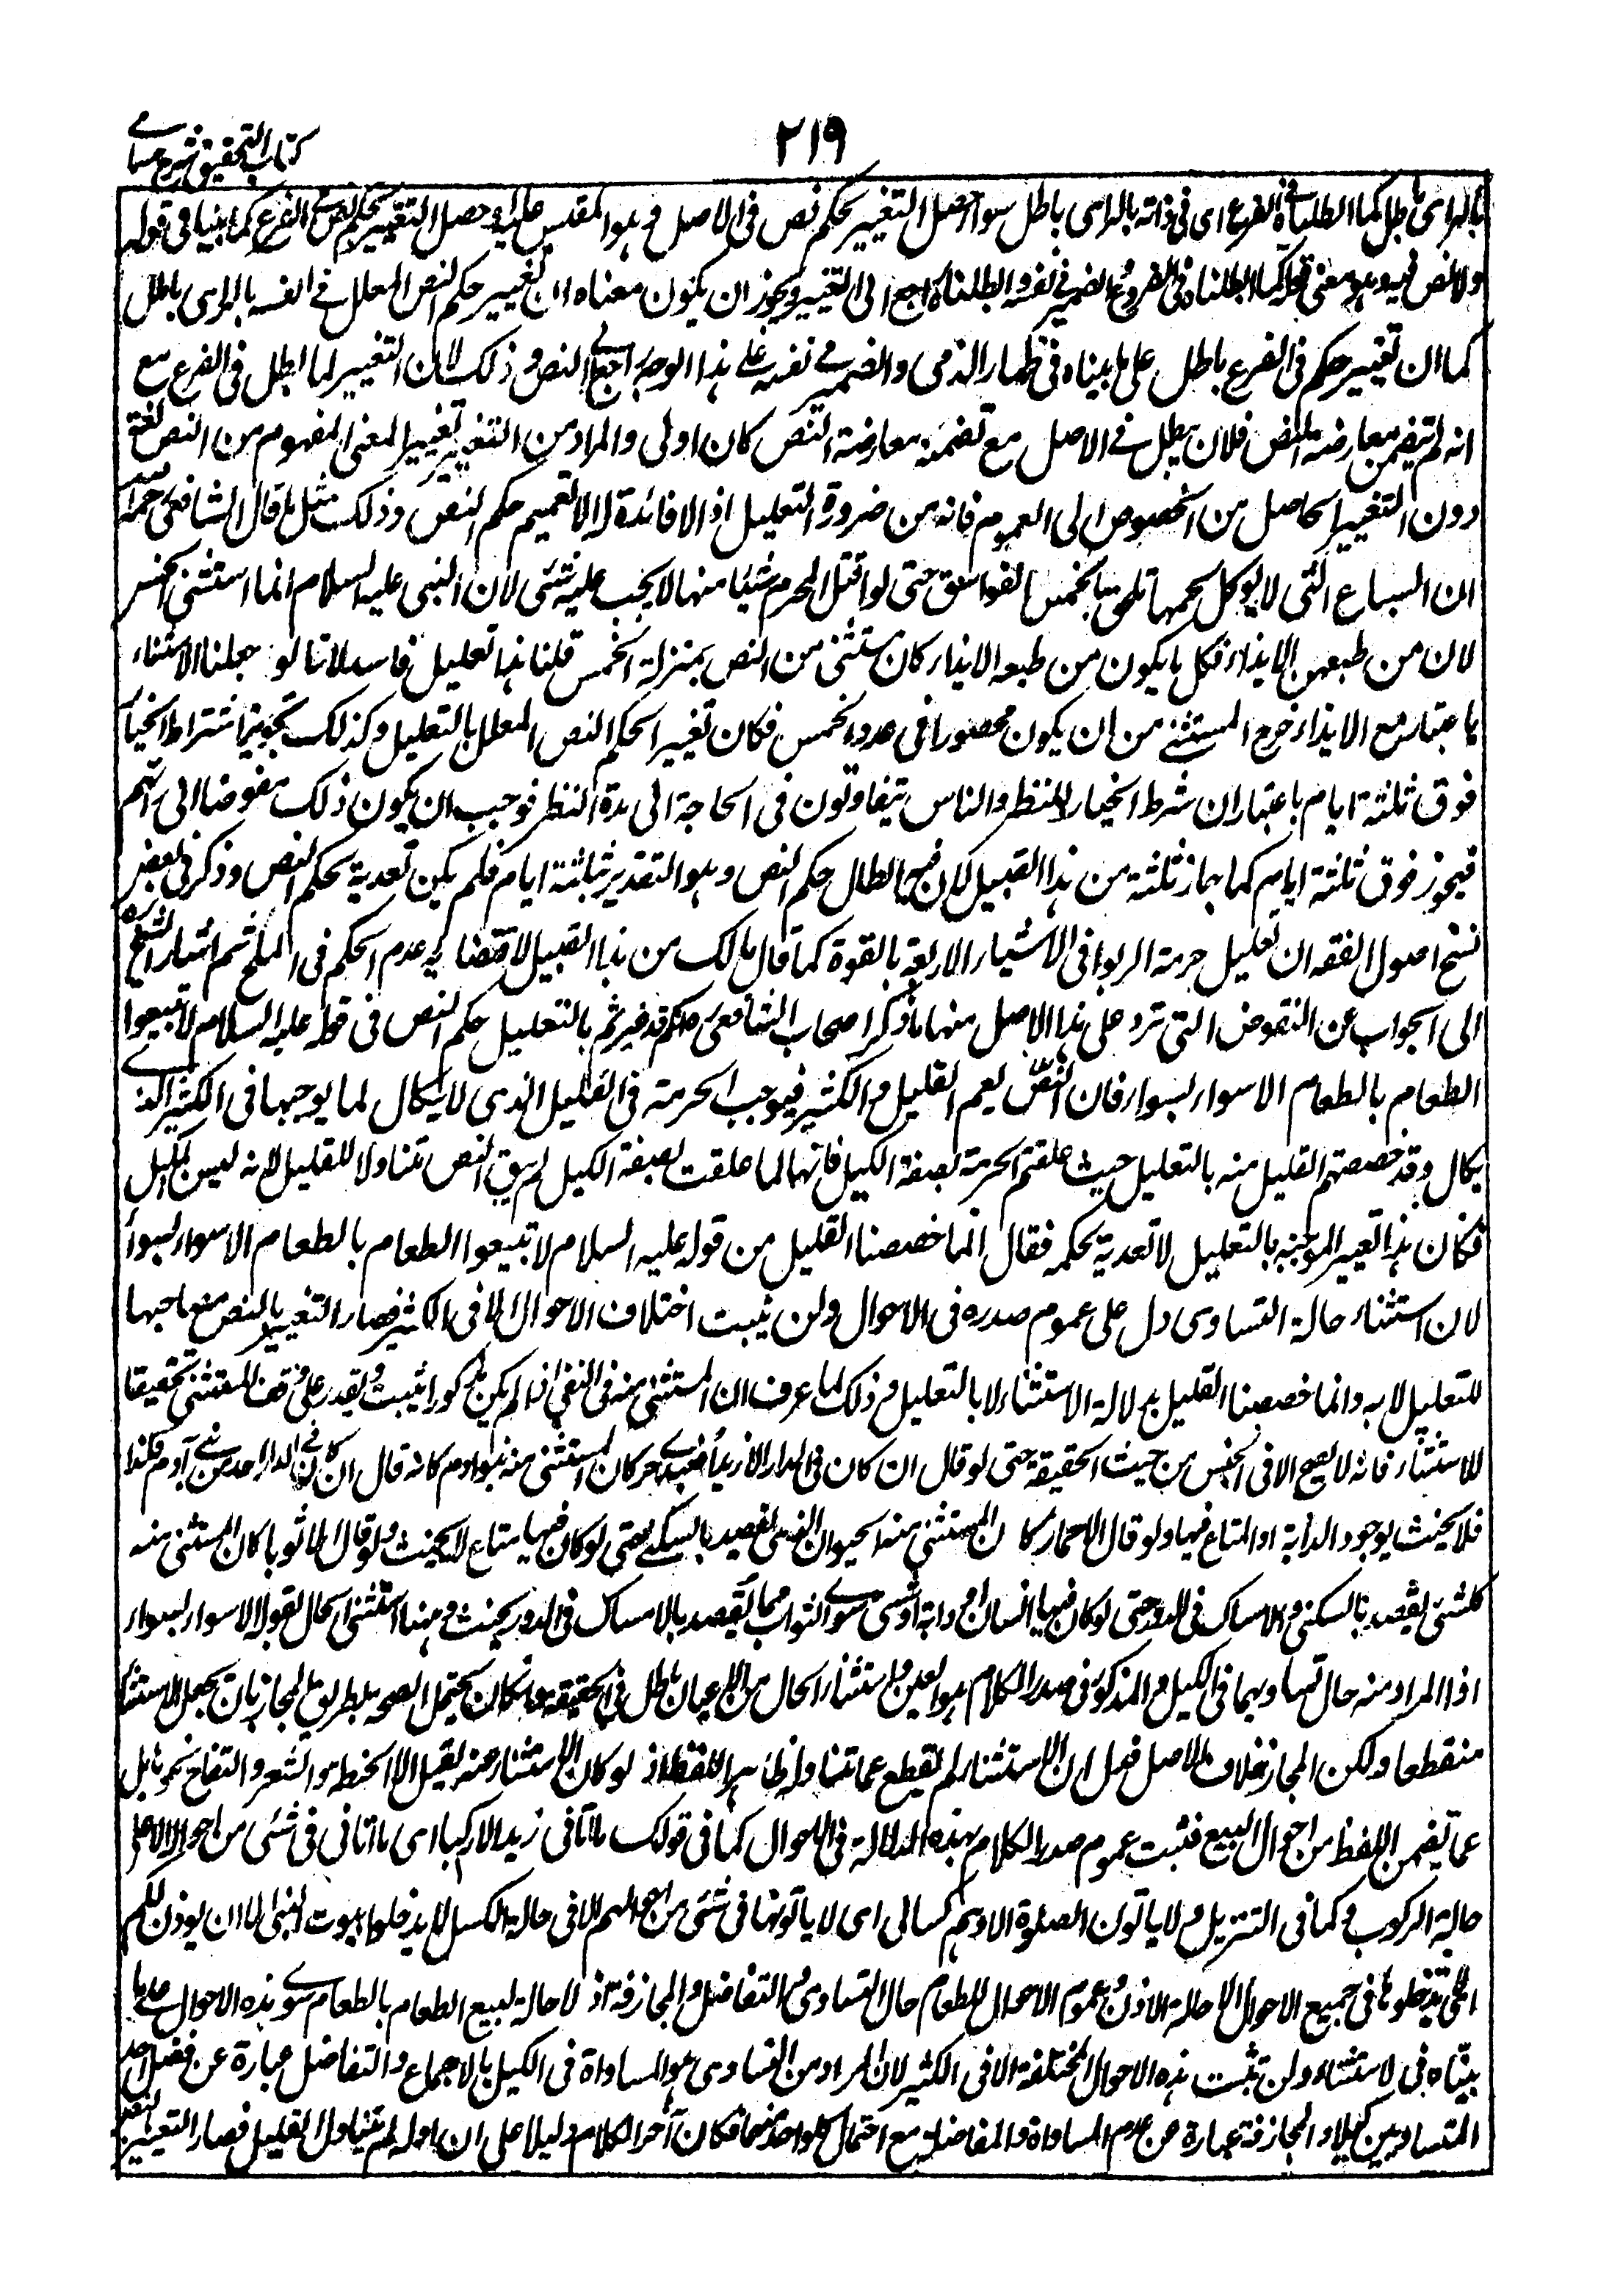 ٢١٩
كتاب التحقيق شرح حسامي
بالراى باطل كما ابطلناه فى الفرع اى فى ذاته بالراى باطل سواء حصل التغيير لحكم نص فى الاصل وهو المقيس عليه او حصل التغيير لحكم النص فى الفرع كما بينا فى قوله
ولا نص فيه وهو معنى قوله كما ابطلناه فى الفروع الضمير فى نفسه وابطلناه راجع الى التغيير ويجوز ان يكون معناه ان تغيير حكم النص المعلل فى نفسه بالراى باطل
كما ان تغيير حكم فى الفرع باطل على ما بيناه فى ظهار الذمى والضمير فى نفسه على هذا الوجه راجع الى النص وذلك لان التغيير لما ابطل فى الفرع مع
انه لم يتضمن معارضة النص فلان يبطل فى الاصل مع تضمنه معارضة النص كان اولى والمراد من التغيير تغيير المعنى المفهوم من النص لغة
دون التغيير الحاصل من الخصوص الى العموم فانه من ضرورة التعليل اذ لا فائدة له الا تعميم حكم النص وذلك مثل ما قال الشافعى رحمه الله
ان السباع التى لا يوكل لحمها تلحق بالخمس الفواسق حتى لو قتل المحرم شيئا منها لا يجب عليه شئ لان النبى عليه السلام انما استثنى الخمس
لان من طبعهن الايذاء فكل ما يكون من طبعه الايذاء كان مستثنى من النص بمنزلة الخمس قلنا هذا تعليل فاسد لانا لو جعلنا الاستثناء
باعتبار معنى الايذاء خرج المستثنى من ان يكون محصورا فى عدد الخمس فكان تغييرا لحكم النص المعلل بالتعليل وكذلك تجويز اشتراط الخيار
فوق ثلثة ايام باعتبار ان شرط الخيار للنظر والناس يتفاوتون فى الحاجة الى مدة النظر فوجب ان يكون ذلك مفوضا الى رأيهم
فيجوز فوق ثلثة ايام كما جاز ثلثة من هذا القبيل لان فيه ابطال حكم النص وهو التقدير بثلثة ايام فلم يكن تعدية لحكم النص وذكر فى بعض
نسخ اصول الفقه ان تعليل حرمة الربوا فى الاشياء الاربعة بالقوة كما قال مالك من هذا القبيل لاقتضائه عدم الحكم فى الملح ثم اشار الشيخ
الى الجواب عن النقوض التى ترد على هذا الاصل منها ما ذكر اصحاب الشافعى انكم قد غيرتم بالتعليل حكم النص فى قوله عليه السلام لا تبيعوا
الطعام بالطعام الا سواء بسواء فان النص يعم القليل والكثير فيوجب الحرمة فى القليل الذى لا يكال كما يوجبها فى الكثير الذى
يكال وقد خصصتم القليل منه بالتعليل حيث علقتم الحرمة بصفة الكيل فانها لما علقت بصفة الكيل لم يبق النص متناولا للقليل لانه ليس بمكيل
فكان هذا تغييرا لموجبه بالتعليل لا تعدية لحكمه فقال انما خصصنا القليل من قوله عليه السلام لا تبيعوا الطعام بالطعام الا سواء بسواء
لان استثناء حالة التساوى دل على عموم صدره فى الاحوال ولن يثبت اختلاف الاحوال الا فى الكثير فصار التغيير بالنص مصاحبا
للتعليل لا به وانما خصصنا القليل بدلالة الاستثناء لا بالتعليل وذلك لما عرف ان المستثنى منه فى النفى اذا لم يكن مذكورا يثبت ويقدر على وفق المستثنى تحقيقا
للاستثناء فانه لا يصح الا فى الجنس من حيث الحقيقة حتى لو قال ان كان فى الدار الا زيدا فعبدى حر كان المستثنى منه بنو ادم كانه قال ان كان فى الدار احد من بنى آدم فكذا
فلا يحنث بوجود الدابة او المتاع فيها ولو قال الا حمار كان المستثنى منه الحيوان الذى يقصد بالسكنى حتى لو كان فيها متاع لا يحنث ولو قال الا ثوبا كان المستثنى منه
كل شئ يقصد بالسكنى والامساك فى الدور حتى لو كان فيها انسان او دابة او شئ سوى الثواب مما يقصد بالامساك فى الدور يحنث وههنا استثنى الحال بقوله الا سواء بسواء
اذ المراد منه حال تساويهما فى الكيل والمذكور فى صدر الكلام هو العين واستثناء الحال من الاعيان باطل فى الحقيقة وان كان يحتمل الصحة بطريق المجاز بان يجعل الاستثناء
منقطعا ولكن المجاز خلاف الاصل فعمل ان الاستثناء لم يقطع عما تناوله ظاهر اللفظ اذ لو كان الاستثناء منه لقيل الا الحنطة والشعير والتفاح نحوه بل
عما تضمن اللفظ من احوال البيع فثبت عموم صدر الكلام بهذه الدلالة فى الاحوال كما فى قولك ما اتانى زيد الا راكبا اى ما اتانى فى شئ من احواله الا على
حالة الركوب وكما فى التنزيل ولا ياتون الصلوة الا وهم كسالى اى لا ياتونها فى شئ من احوالهم الا فى حالة الكسل لا يدخلوا بيوت النبى الا ان يوذن لكم
اى لا تدخلوها فى جميع الاحوال الا حالة الاذن وعموم الاحوال للطعام حال التساوى والتفاضل والمجازفة اذ لا حالة لبيع الطعام بالطعام سوى هذه الاحوال على ما
بيناه فى الاستثناء ولن تثبت هذه الاحوال المختلفة الا فى الكثير لان المراد من التساوى هو المساواة فى الكيل بالاجماع والتفاضل عبارة عن فضل احد
المتساويين كيلا والمجازفة عبارة عن عدم المساواة والمفاضلة مع احتمال كل واحد منهما فكان آخر الكلام دليلا على ان اوله لم يتناول القليل فصار التغيير